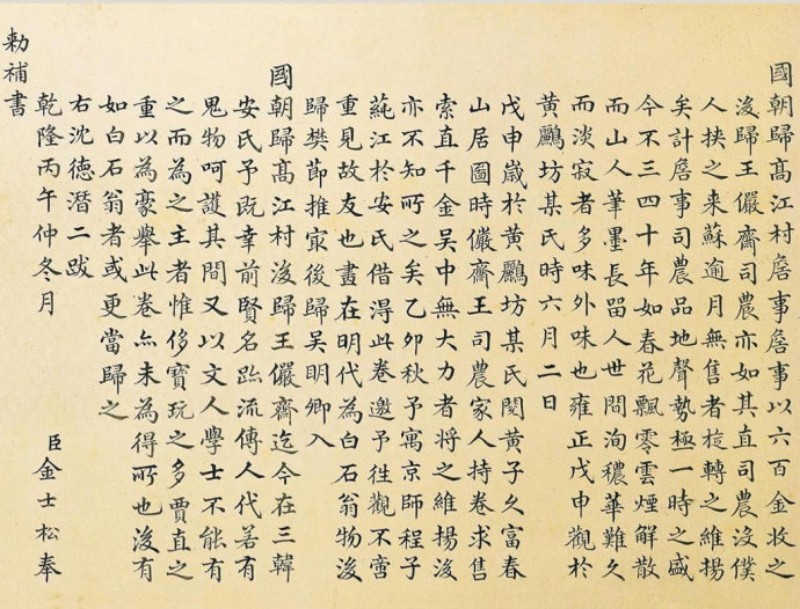 國朝歸髙江村詹事詹事以六百金收之
後歸王儼齋司農亦如其直司農没僕
人挾之来蘇逾月無售者旋轉之維揚
矣計詹事司農品地聲勢極一時之盛
今不三四十年如春花飄零雲煙解散
而山人筆墨長留人世間洵穠華難久
而淡寂者多味外味也雍正戊申觀於
黄鸝坊某氏時六月二日
戊申嵗於黄鸝坊某氏閲黄子久富春
山居圖時儼齋王司農家人持卷求售
索直千金吴中無大力者將之維揚後
亦不知所之矣乙卯秋予寓京師程子
蒓江於安氏借得此卷邀予徃觀不啻
重見故友也畫在明代為白石翁物後
歸樊節推冣後歸吴明卿入
國朝歸髙江村後歸王儼齋迄今在三韓
安氏予既幸前賢名跡流傳人代若有
鬼物呵護其間又以文人學士不能有
之而為之主者惟侈寶玩之多賈直之
重以為豪舉此卷亦未為得所也後有
如白石翁者或更當歸之
右沈德潜二跋
乾隆丙午仲冬月 臣金士松奉
勅補書